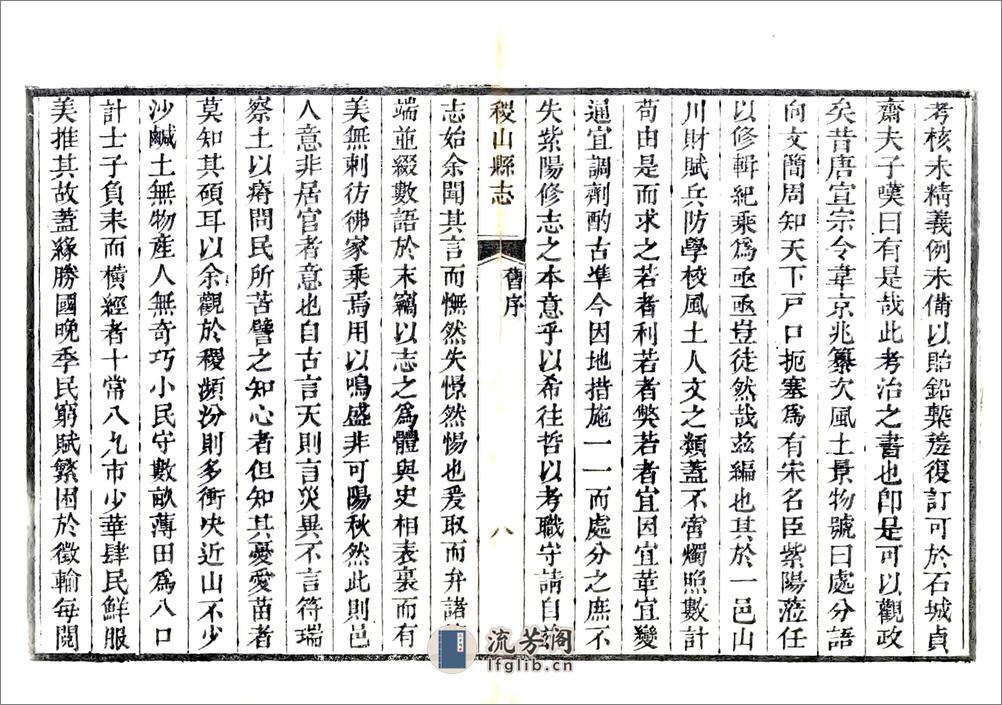 考核未精義例未備以貽鉛槧羞復訂可於石城貞
齋夫子嘆曰有是哉此考治之書也卽是可以觀政
矣昔唐宣宗令韋京兆纂次風土景物號曰處分語
向文簡周知天下戸口扼塞爲有宋名臣紫陽蒞任
以修輯紀乗爲亟亟豈徒然哉兹編也其於一邑山
川財賦兵防學校風土人文之類蓋不啻燭照數計
苟由是而求之若者利若者弊若者宜因宜革宜變
通宜調劑酌古準今因地措施一一而處分之庶不
失紫陽修志之本意乎以希往哲以考職守請自
稷山縣志
舊序
八
志始余聞其言而憮然失憬然惕也爰取而弁諸
端並綴數語於末竊以志之爲體與史相表裏而有
美無刺彷彿家乗焉用以鳴盛非可陽秋然此則邑
人意非居官者意也自古言天則言災異不言符瑞
察土以瘠問民所苦譬之知心者但知其憂愛苗者
莫知其碩耳以余觀於稷瀕汾則多衝决近山不少
沙鹹土無物産人無奇巧小民守數畝薄田爲八口
計士子負耒而橫經者十常八九市少華肆民鮮服
美推其故蓋緣勝國晩季民窮賦繁困於徵輸每閲
流芳阁
lfglib.cn